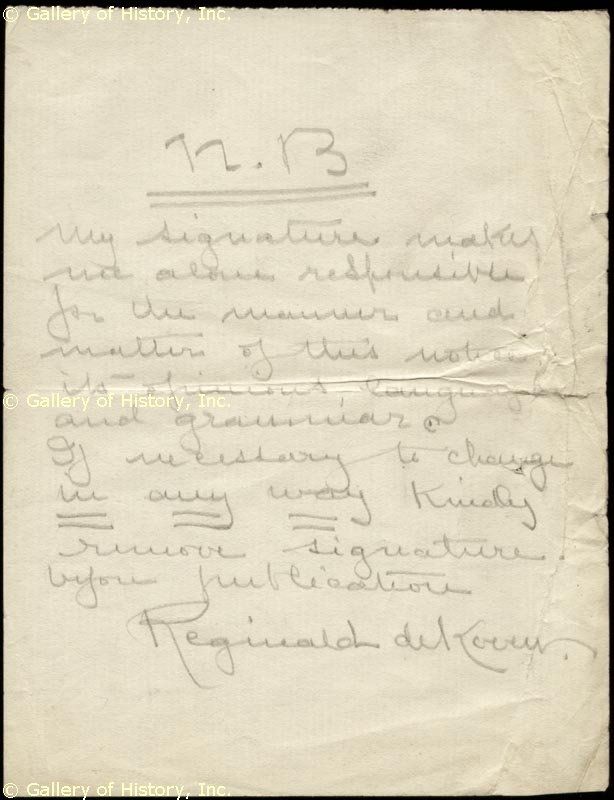 © Gallery of History, Inc.
N.B
My signature makes
me alone responsible
for the manner and
matter of this notice
its opinions language
© Gallery of History, Inc.
and grammar.
If necessary to change
in any way kindly
remove signature
before publication
Reginald deKoven.
© Gallery of History, Inc.